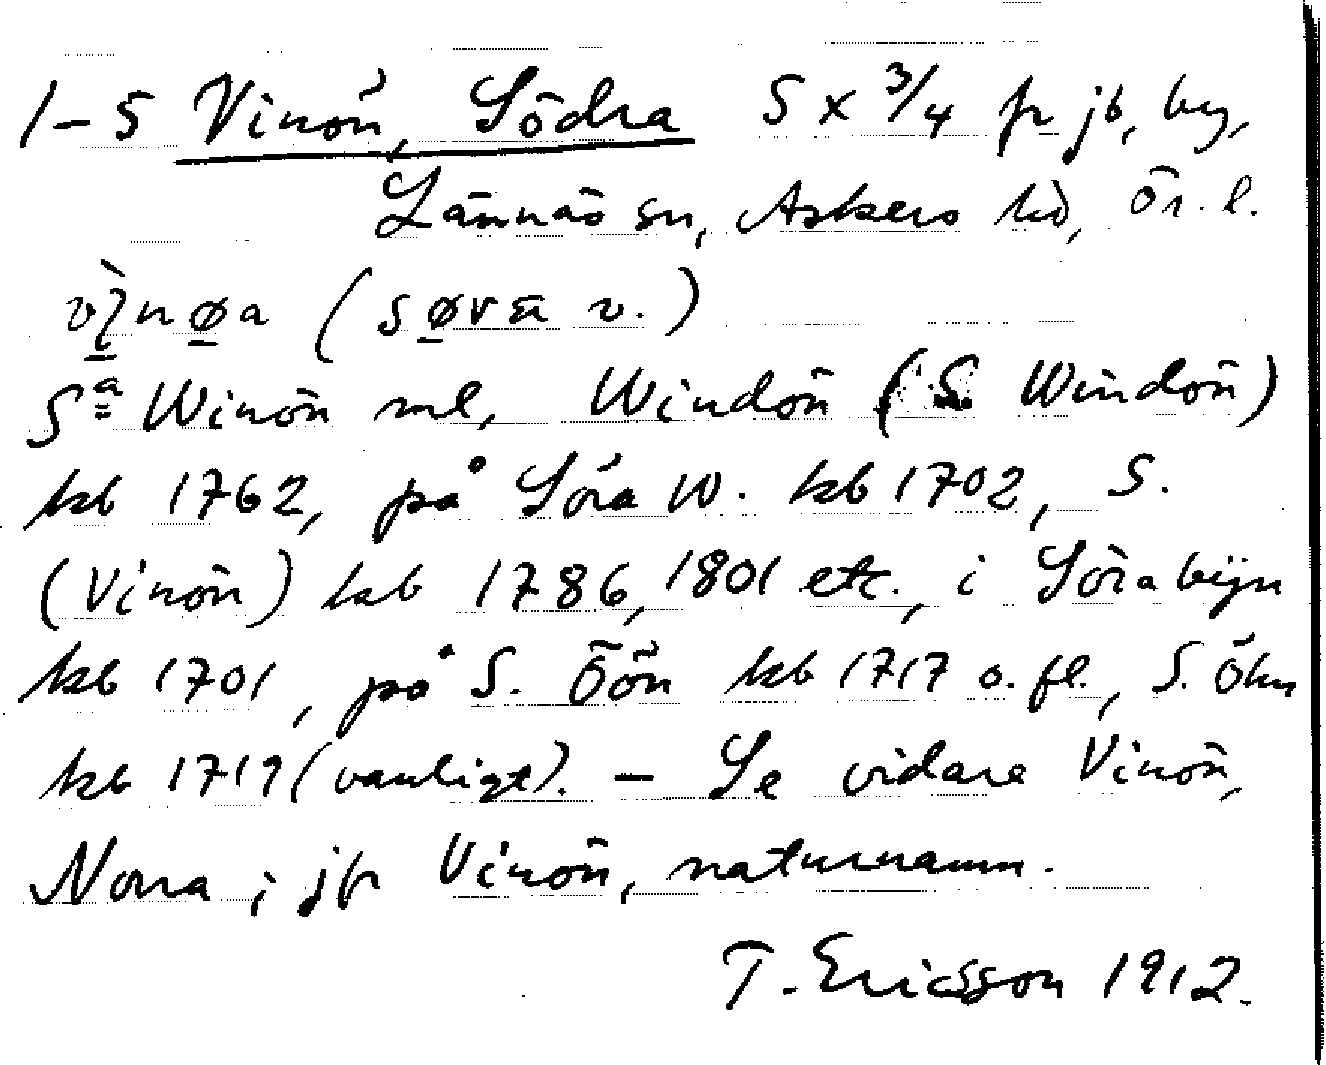 1-5 Vinön, Södra 5 x 3/4 fr jb, by,
Lännäs sn, Askers hd, Ör. l.
(søra v.)
Sa Winön ml, Windön (S. Windön)
kb 1762, på Söra W. kb 1702, S.
(Vinön) kb 1786, 1801 etc., i Söra byn
kb 1701, på S. Öön kb 1717 o. fl., S. Öhn
kb 1719 (vanligt). - Se vidare Vinön,
Norra; jfr Vinön, naturnamn.
T. Ericsson 1912.